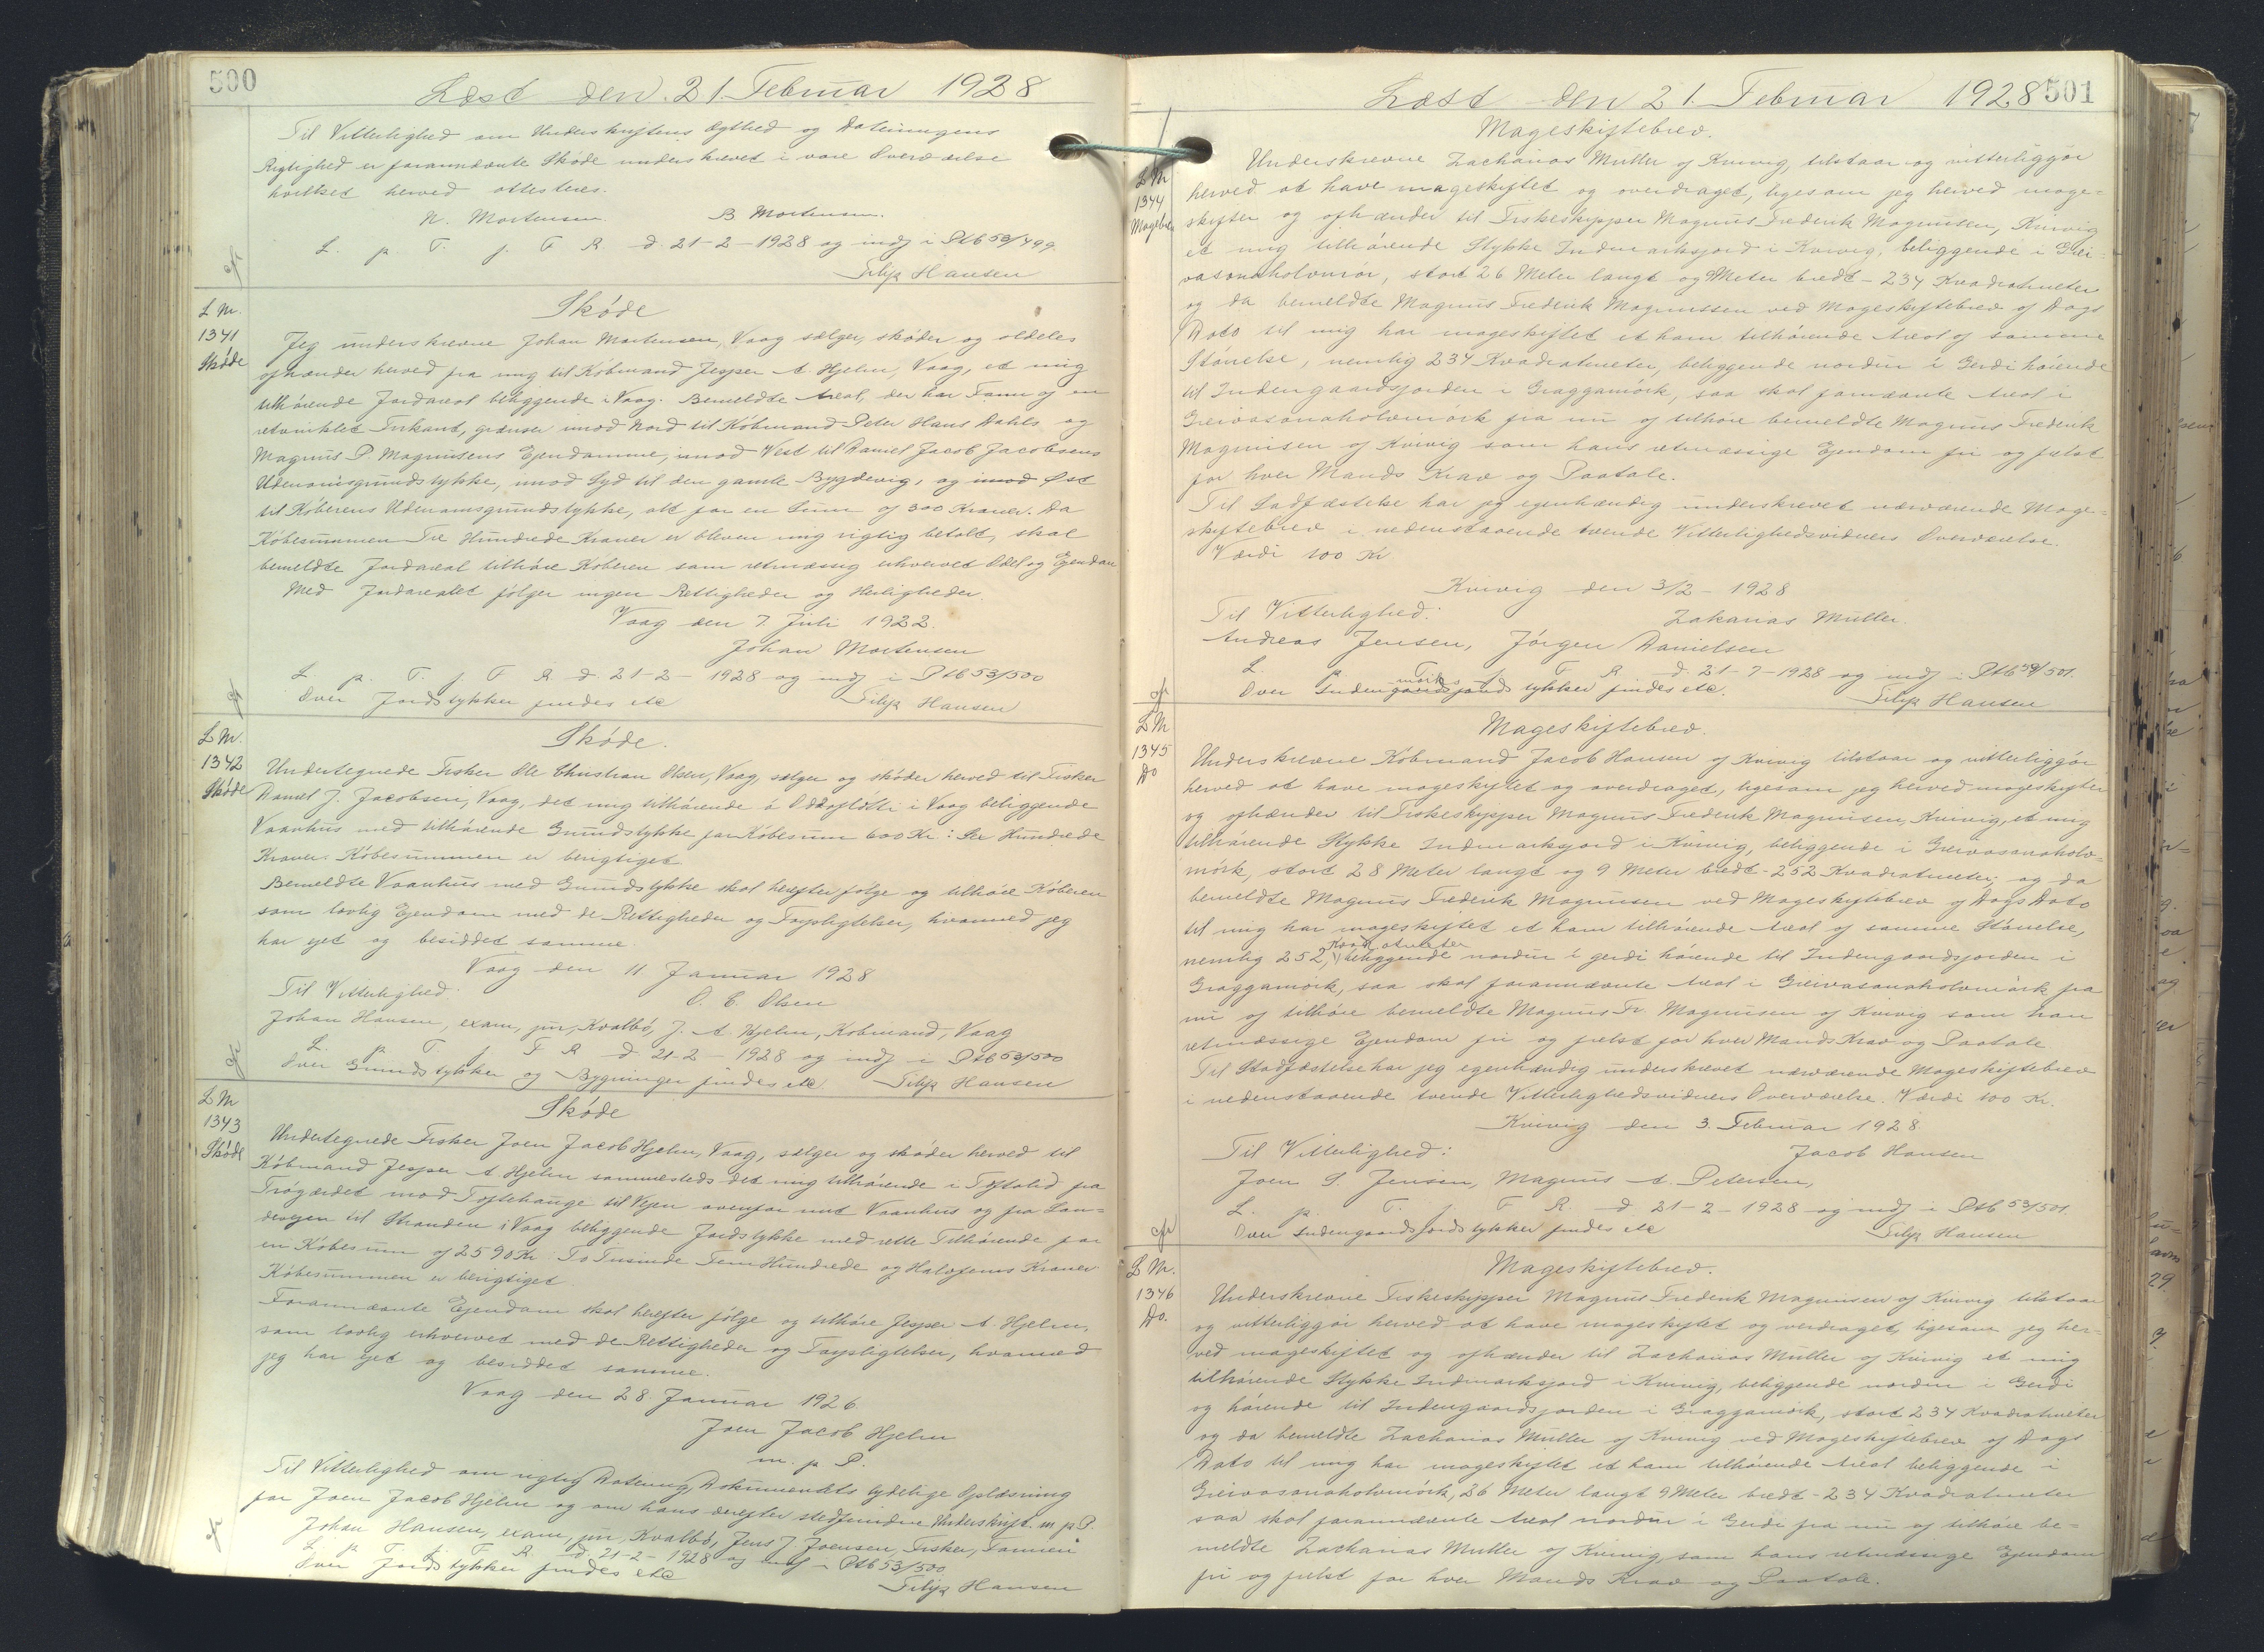 500
Læst den 21. Februar 1928
Til Vitterlighed om Underskriftens Ægthed og Dateringens
Rigtighed er forannævnte Skøde underskrevet i vore Overværelse
hvilket herved attesteres.
N. Mortensen. B Mortensen.
L. p. T. f. F R d. 21-2-1928 og indf i Ptb 53/499
Filip Hansen
L Nr.
1341
Skøde
Skøde
Jeg underskrevne Johan Mortensen, Vaag sælger, skøder og aldeles
afhænder herved fra mig til Købmand Jesper A. Hjelm, Vaag, et mig
tilhørende Jordareal beliggende i Vaag. Bemeldte Areal, der har Form af en
retvinklet Firkant, grænser imod Nord til Købmand Peter Hans Dahls og
Magnus P. Magnusens Ejendomme, imod Vest til Daniel Jacob Jacobsens
Udenomsgrundstykke, imod Syd til den gamle Bygdevig, og imod Øst
til Køberens Udenomsgrundstykke, alt for en Sum af 300 Kroner. Da
Købesummen Tre Hundrede Kroner er bleven mig rigtig betalt, skal
bemeldte Jordareal tilhøre Køberen som retmæssig erhvervet Odel og Ejendom
Med Jordarealet følger ingen Rettigheder og Herligheder.
Vaag den 7. Juli 1922.
Johan Mortensen
L p. T. f. F R d. 21-2-1928 og indf i Ptb 53/500
Over Jordstykker findes etc Filip Hansen
L Nr.
1342
Skøde
Skøde.
Undertegnede Fisker Ole Christian Olsen, Vaag, sælger og skøder herved til Fisker
Daniel J. Jacobsen, Vaag, det mig tilhørende á Oddafløtti i Vaag beliggende
Vaanhus med tilhørende Grundstykke for Købesum 600 Kr: Sex Hundrede
Kroner. Købesummen er berigtiget
Bemeldte Vaanhus med Grundstykke skal herefter følge og tilhøre Køberen
som lovlig Ejendom med de Rettigheder og Forpligtelser, hvormed jeg
har ejet og besiddet samme.
Vaag den 11. Januar 1928
Til Vitterlighed. O. C. Olsen
Johan Hansen, exam, jur, Kvalbø, J. A. Hjelm, Købmand, Vaag
L. p. T. f. F R d. 21-2-1928 og indf i Ptb 53/500
Over Grundstykker og Bygninger findes etc. Filip Hansen
L Nr
1343
Skøde
Skøde
Undertegnede Fisker Joen Jacob Hjelm, Vaag, sælger og skøder herved til
Købmand Jesper A. Hjelm sammesteds det mig tilhørende i Toftalid fra
Trøgærdet mod Toftehauge til Vejen ovenfor mit Vaanhus og fra Lan-
devejen til Stranden i Vaag beliggende Jordstykke med rette Tilhørende for
en Købesum af 2590 Kr. To Tusinde Fem Hundrede og Halvfems Kroner
Købesummen er berigtiget.
Forannævnte Ejendom skal herefter følge og tilhøre Jesper A. Hjelm,
som lovlig erhvervet med de Rettigheder og Forpligtelser, hvormed
jeg har ejet og besiddet samme.
Vaag den 28. Januar 1926.
Joen Jacob Hjelm
m. p P.
Til Vitterlighed om rigtig Datering, Dokumentets tydelige Oplæsning
for Joen Jacob Hjelm og om hans derefter stedfundne Underskrift. m p P.
Johan Hansen, exam, jur, Kvalbø, Jens J. Joensen, Fisker, Famien
L. p. T. f. F R. d. 21-2-1928 og indf i Ptb 53/500
Over Jordstykker findes etc
Filip Hansen
501
Læst den 21. Februar 1928
L Nr
1344
Magebr
Mageskiftebrev.
Underskrevne Zacharias Müller af Kvivig, tilstaar og vitterliggør
herved at have mageskiftet og overdraget, ligesom jeg herved mage-
skifter og afhænder til Fiskeskipper Magnus Frederik Magnusen, Kvivig
et mig tilhørende Stykke Indmarksjord i Kvivig, beliggende i Grei-
vasonaholvmørk, stort 26 Meter langt og 9 Meter bredt - 234 Kvadratmeter
og da bemeldte Magnus Frederik Magnussen ved Mageskiftebrev af Dags
Dato til mig har mageskiftet et ham tilhørende Areal af samme
Størrelse, nemlig 234 Kvadratmeter, beliggende nordur í Gerdi hørende
til Indengaardsjorden i Graggamørk, saa skal fornævnte Areal i
Greivasonaholvmørk fra nu af tilhøre bemeldte Magnus Frederik
Magnusen af Kvivig som hans retmæssige Ejendom fri og frelst
for hver Mands Krav og Paatale.
Til Stadfæstelse har jeg egenhændig underskrevet nærværende Mage-
skiftebrev i nedenstaaende tvende Vitterlighedsvidners Overværelse.
Værdi 100 Kr
Kvivig den 3/2 - 1928
Til Vitterlighed: Zakarias Müller.
Andreas Jensen, Jørgen Danielsen
L. p. T. f. F R d. 21-7-1928 og indf i Ptb 53/501.
Over Indengaardsjordstykker findes etc. Filip Hansen
L Nr
1345
Do
Mageskiftebrev.
Underskrevne Købmand Jacob Hansen af Kvivig tilstaar og vitterliggør
herved at have mageskiftet og overdraget, ligesom jeg herved mageskifter
og afhænder til Fiskeskipper Magnus Frederik Magnusen, Kvivig, et mig
tilhørende Stykke Indmarksjord i Kvivig, beliggende i Greivasonaholv-
mørk, stort 28 Meter langt og 9 Meter bredt - 252 Kvadratmeter; og da
bemeldte Magnus Frederik Magnusen ved Mageskiftebrev af Dags Dato
til mig har mageskiftet et ham tilhørende Areal af samme Størrelse,
nemlig 252 Kvadratmeter, beliggende nordur í gerdi hørende til Indengaardsjorden i
Graggamørk, saa skal forannævnte Areal i Greivasonaholvmørk fra
nu af tilhøre bemeldte Magnus Fr. Magnusen af Kvivig som han
retmæssige Ejendom fri og frelst for hver Mands Krav og Paatale
Til Stadfæstelse har jeg egenhændig underskrevet nærværende Mageskiftebrev
i nedenstaaende tvende Vitterlighedsvidners Overværelse. Værdi 100 Kr.
Kvivig den 3. Februar 1928
Til Vitterlighed: Jacob Hansen
Joen S. Jensen, Magnus A. Petersen,
L. p. T. f. F R. d. 21-2-1928 og indf i Ptb 53/501.
Over Indengaardsjordstykker findes etc Filip Hansen
L Nr.
1346
Do.
Mageskiftebrev.
Underskrevne Fiskeskipper Magnus Frederik Magnusen af Kvivig tilstaar
og vitterliggør herved at have mageskiftet og verdraget, ligesom jeg her-
ved mageskiftet og afhænder til Zacharias Müller af Kvivig et mig
tilhørende Stykke Indmarksjord i Kvivig, beliggende nordur i Gerdi
og hørende til Indengaardsjorden i Graggamørk, stort 234 Kvadratmeter
og da bemeldte Zacharias Müller af Kvivig ved Mageskiftebrev af Dags
Dato til mig har mageskiftet et ham tilhørende Areal beliggende i
Greivasonaholvmørk, 26 Meter langt 9 Meter bredt - 234 Kvadratmeter
saa skal forannævnte Areal nordur i Gerdi fra nu af tilhøre be-
meldte Zacharias Müller af Kvivig, som hans retmæssige Ejendom
fri og frelst for hver Mands Krav og Paatale.